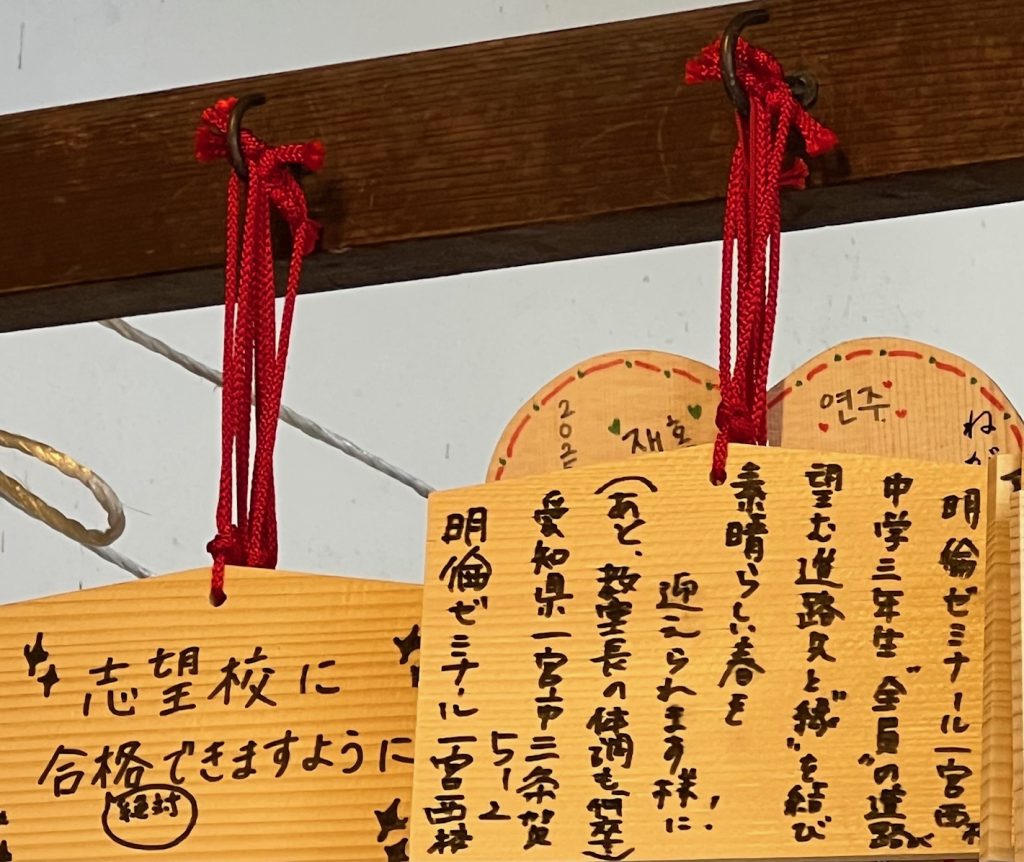 志望校に
合格できますように
絶対
연주
재호
ねが
明倫ゼミナール一宮西校
中学三年生“全員”の進路が
望む進路先と“縁”を結び
素晴らしい春を
迎えられます様に!!
(あと、教室長の体調も、何卒)
愛知県一宮市三条賀
51-2
明倫ゼミナール一宮西校